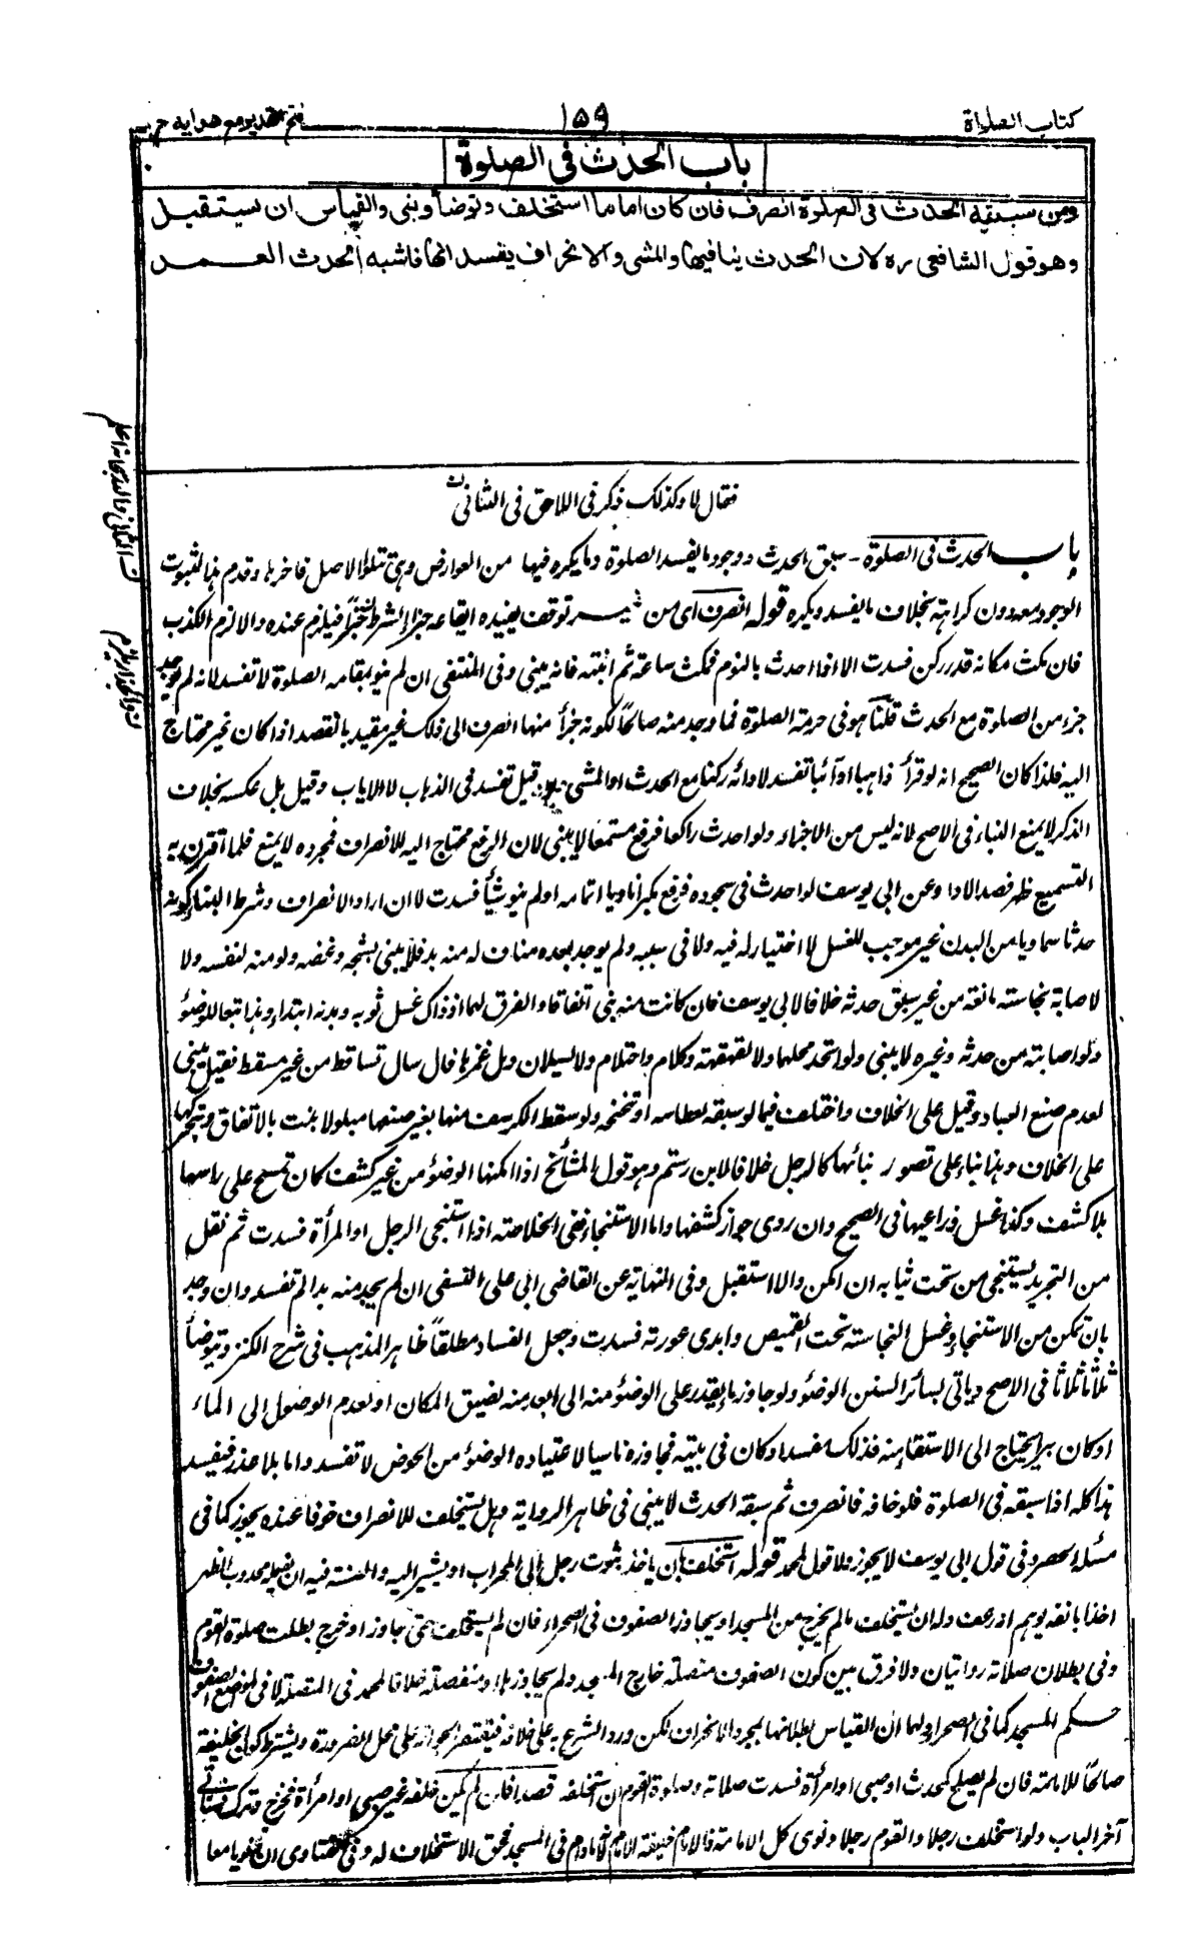 كتاب الصلوة
١٥٩
فتح القدير مع هدايه
باب الحدث فى الصلوة
ومن سبقه الحدث فى الصلوة انصرف فان كان اماما استخلف وتوضأ وبنى والقياس ان يستقبل
وهو قول الشافعى ره لان الحدث ينافيها والمشى والانحراف يفسدانها فاشبه الحدث العمد
فقال لا وكذلك ذكر فى اللاحق فى الثانى
باب الحدث فى الصلوة - سبق الحدث ووجود ما يفسد الصلوة وما يكره فيها من العوارض وهى تتلو الاصل فاخرها وقدم هذا لثبوت
الوجود معه دون كراهته بخلاف ما يفسد ويكره قوله انصرف اى من غير توقف يفيده ايقاعه جزاء الشرط فيلزم عنده والا لزم الكذب
فان مكث مكانه قدر ركن فسدت الا اذا احدث بالنوم فمكث ساعة ثم انتبه فانه يبنى وفى المنتقى ان لم ينو بمقامه الصلوة لا تفسد لانه لم يوجد
جزء من الصلوة مع الحدث قلنا هو فى حرمة الصلوة فما وجد منه صالحا لكونه جزأ منها انصرف الى ذلك غير مقيد بالقصد اذا كان غير محتاج
اليه فلذا كان الصحيح انه لو قرأ ذاهبا او آئبا تفسد لادائه ركنا مع الحدث او المشى وقيل تفسد فى الذهاب لا الاياب وقيل بل عكسه بخلاف
الذكر لا يمنع البناء فى الاصح لانه ليس من الاجزاء ولو احدث راكعا فرفع مستمعا لا يبنى لان الرفع محتاج اليه للانصراف فمجرده لا يمنع فلما اقترن به
التسميع ظهر قصد الادا وعن ابى يوسف لو احدث فى سجوده فرفع مكبرا ناويا اتمامه او لم ينو شيأ فسدت لا ان اراد الانصراف وشرط البناء كونه
حدثا سماويا من البدن غير موجب للغسل لا اختيار له فيه ولا فى سببه ولم يوجد بعده مناف له منه بد فلا يبنى بشجه وعضه ولو منه لنفسه ولا
لاصابة نجاسته مانعة من غير سبق حدثه خلافا لابى يوسف فان كانت منه بنى اتفاقا والفرق لهما ان ذاك غسل ثوبه وبدنه ابتداء وهذا تبعا للوضؤ
ولو اصابته من حدثه وغيره لا يبنى ولو اتحد محلها ولا لقهقهة وكلام واحتلام ولا لسيلان دمل غمزها فان سال تساقط من غير مسقط فقيل يبنى
لعدم صنع العباد وقيل على الخلاف واختلف فيما لو سبقه لعطاسه او تنحنحه ولو سقط الكرسف منها بغير صنعها مبلولا بنت بالاتفاق وبتحركها
على الخلاف وهذا بناء على تصور بنائها كالرجل خلافا لابن رستم وهو قول المشائخ اذا امكنها الوضؤ من غير كشف كان تمسح على راسها
بلا كشف وكذا غسل ذراعيها فى الصحيح وان روى جواز كشفها واما الاستنجاء ففى الخلاصة اذا استنجى الرجل او المرأة فسدت ثم نقل
من التجريد يستنجى من تحت ثيابه ان امكن والا استقبل وفى النهاية عن القاضى ابى على النسفى ان لم يجد منه بدا لم تفسد وان وجد
بان تمكن من الاستنجاء وغسل النجاسة تحت القميص وابدى عورته فسدت وجعل الفساد مطلقا ظاهر المذهب فى شرح الكنز ويتوضأ
ثلاثا ثلاثا فى الاصح ويأتى بسائر السنن الوضؤ ولو جاوز ما يقدر على الوضؤ منه الى ابعد منه لضيق المكان او لعدم الوصول الى الماء
او كان بيرا يحتاج الى الاستقاء منه فذلك مفسد او كان فى بيته فجاوزه ناسيا لاعتياده الوضؤ من الحوض لا تفسد واما بلا عذر فيفسد
هذا كله اذا سبقه فى الصلوة فلو خافه فانصرف ثم سبقه الحدث لا يبنى فى ظاهر الرواية وهل يستخلف للانصراف خوفا عنده يجوز كما فى
مسئلة الحصر وفى قول ابى يوسف لا يجوز ولا قول لمحمد قوله استخلف بان ياخذ بثوب رجل الى المحراب او يشير اليه والسنة فيه ان يفعله محدودب الظهر
اخذا بانفه يوهم انه رعف وله ان يستخلف ما لم يخرج من المسجد او يجاوز الصفوف فى الصحراء فان لم يستخلف حتى جاوز او خرج بطلت صلوة القوم
وفى بطلان صلاته روايتان ولا فرق بين كون الصفوف متصلة خارج المسجد ولم يجاوزها او منفصلة خلافا لمحمد فى المتصلة لان لمواضع الصفوف
حكم المسجد كما فى الصحراء ولهما ان القياس بطلانها بمجرد الانحراف لكن ورد الشرع به على خلافه فيقتصر الجواز على محل الضرورة ويشترط كون الخليفة
صالحا للامامة فان لم يصلح كمحدث او صبى او امرأة فسدت صلاته وصلوة القوم ان استخلفه قصدا فان لم يكن خلفه غير صبى او امرأة فخرج وتركه
آخر الباب ولو استخلف رجلا والقوم رجلا ونوى كل الامامة فالامام خليفة الامام لانه ما دام فى المسجد فحق الاستخلاف له وفى الفتاوى ان نويا معا